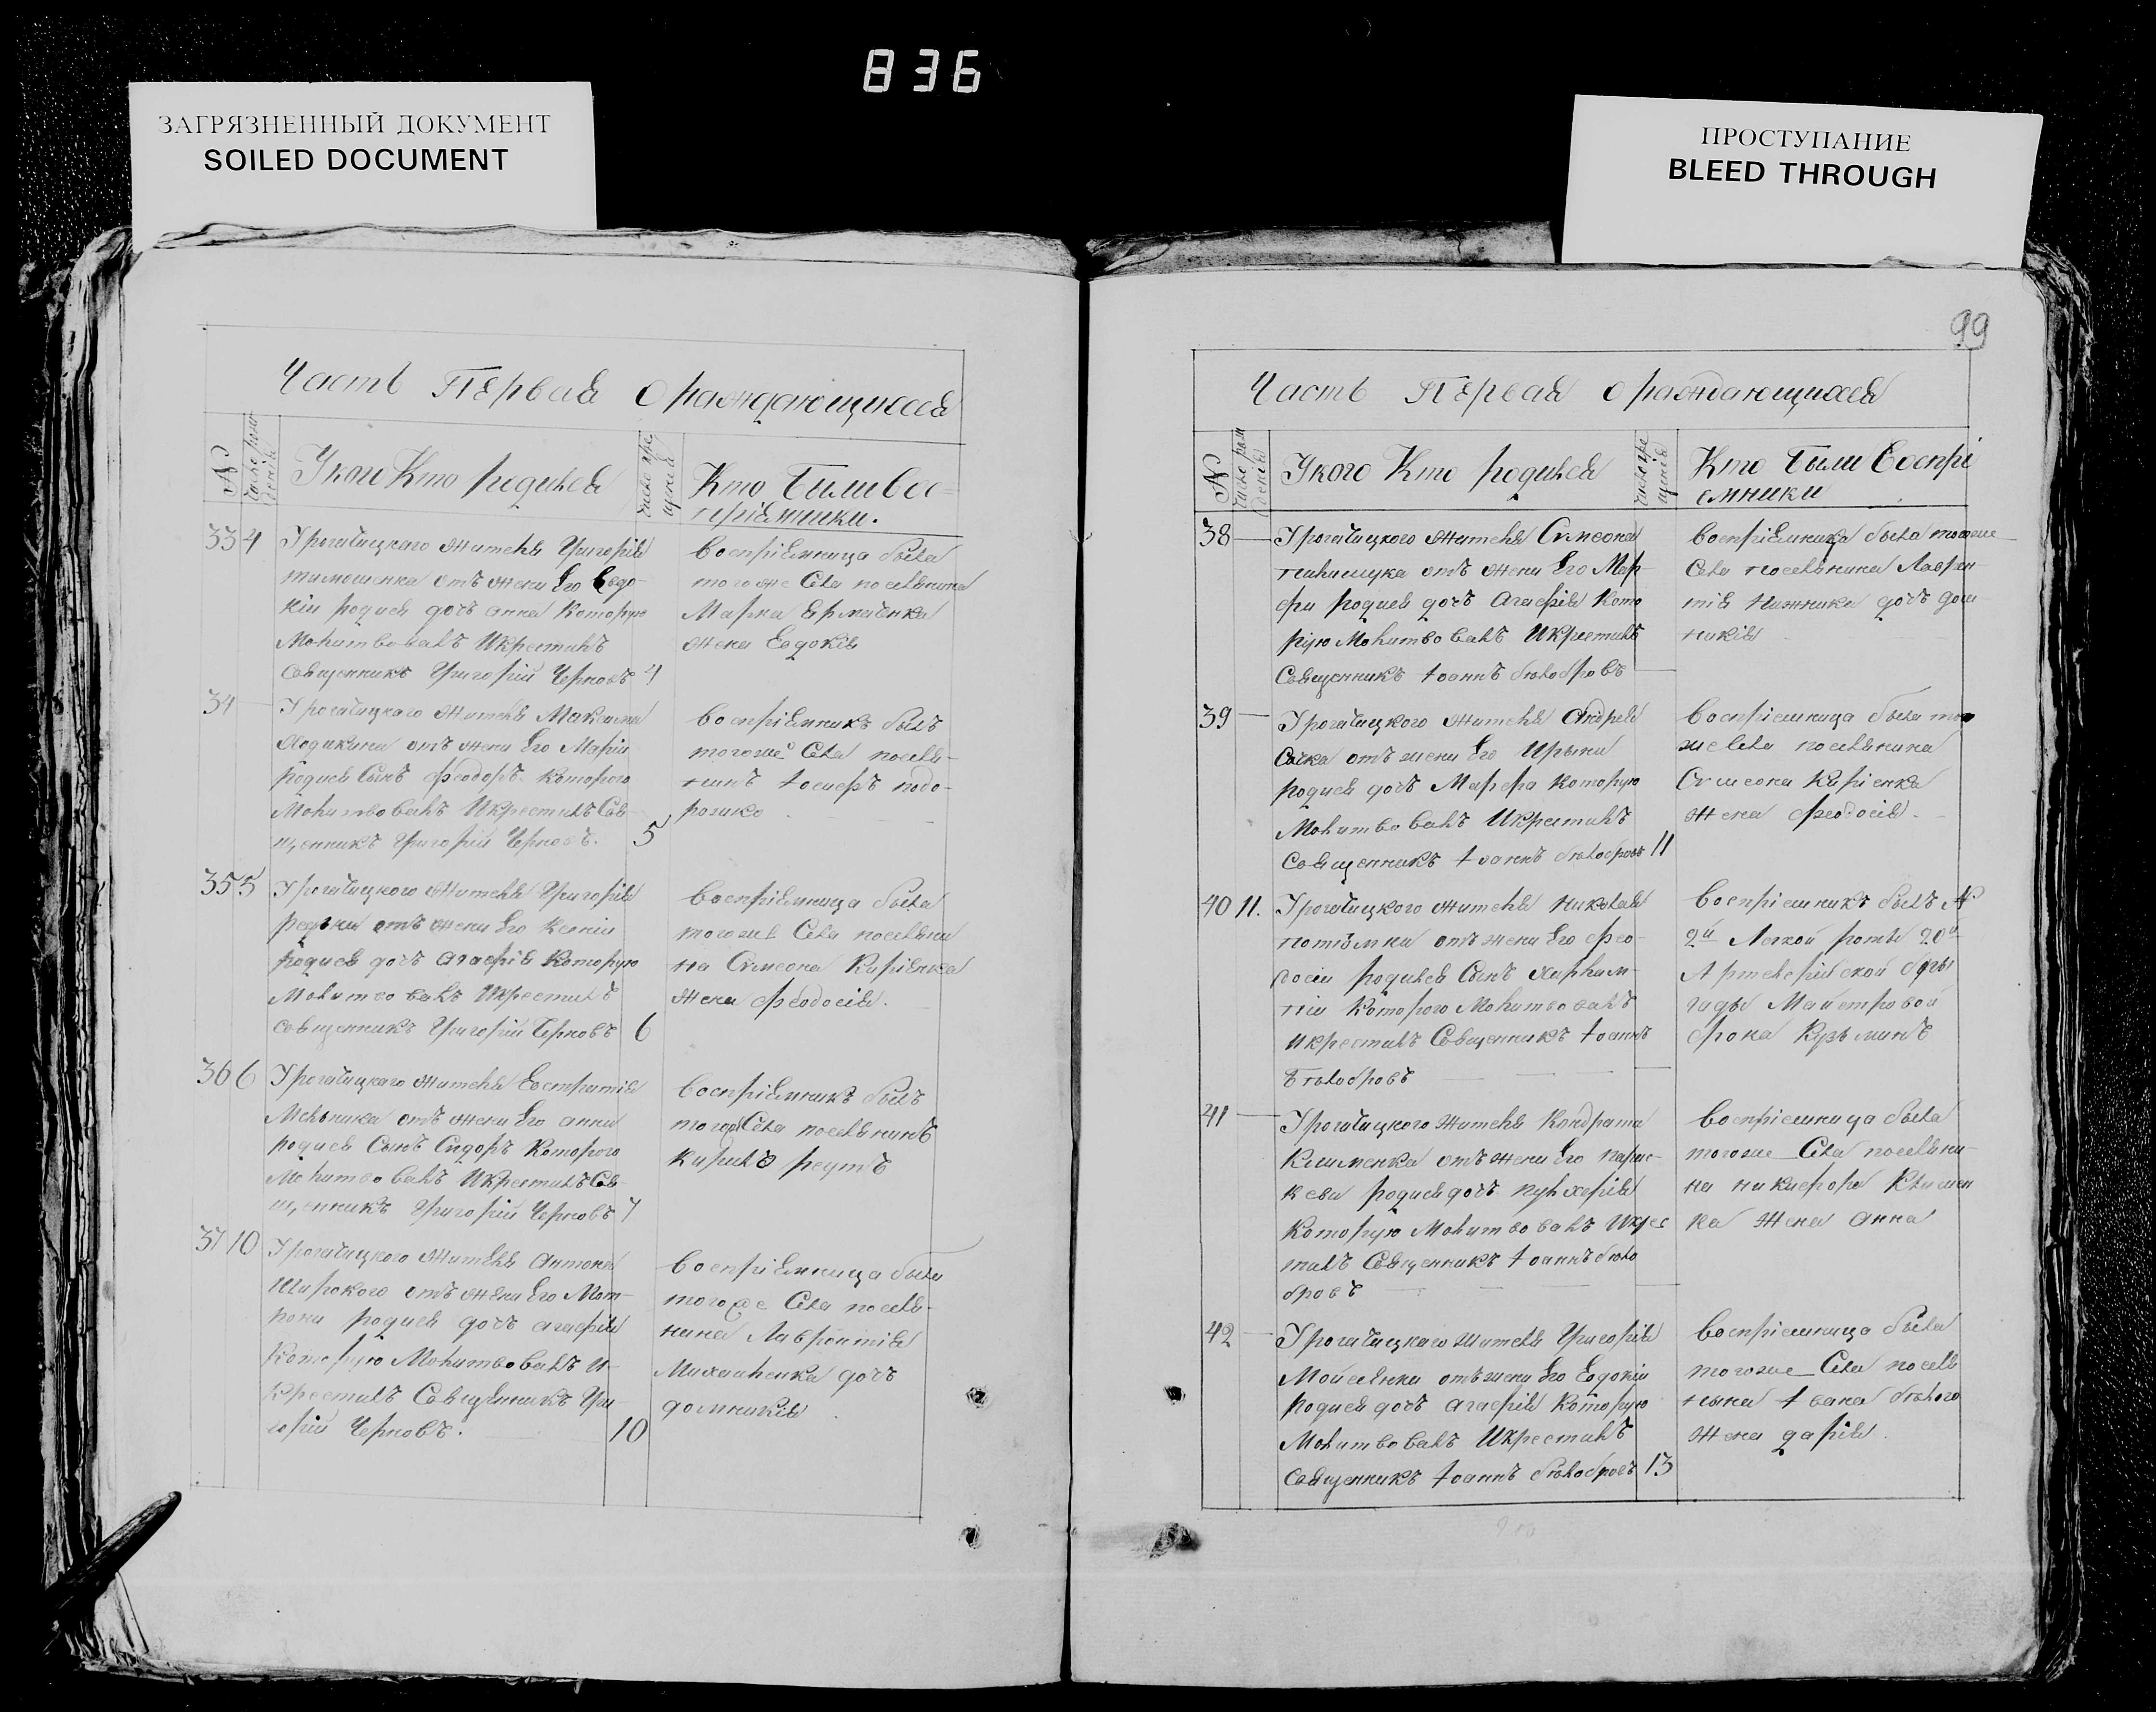 836
ЗАГРЯЗНЕННЫЙ ДОКУМЕНТ
SOILED DOCUMENT
ПРОСТУПАНИЕ
BLEED THROUGH
Часть Первая о раждающихся
№
У кого Кто родился
Кто Били Вос=
пріемники.
33 4
У рогачицкого жителя Григорія
тимошенка отъ жени Его Евдо-
кіи родися дочъ анна Которую
Молитвовалъ И крестилъ
Священникъ Григорій Черновъ 4
воспріемница была
того же Села поселянина
Марка Ермаченка
жена Евдокія
34
У рогачицкого жителя Максима
отъ жени Его Маріи
родися Сынъ феодоръ которого
Молитвовалъ И крестилъ Свя-
щенникъ Григорій Черновъ. 5
воспріемникъ былъ
тогоже Села поселя-
нинъ Іосифъ подо-
рожко
35 5
У рогачицкого жителя Григорія
редьки отъ жени Его Ксеніи
родися дочъ агафія Которую
Молитвовалъ И крестилъ
священникъ Григорій Черновъ 6
воспріемница была
тогоже Села поселяни
на Симеона Киріенка
жена феодосія.
36 6
У рогачицкаго жителя Евстратія
Мельника отъ жени Его анни
родися Сынъ Сидоръ Которого
Молитвовалъ И крестилъ Свя-
щенникъ Григорій Черновъ 7
воспріемникъ былъ
того Села поселянинъ
Кирилъ реутъ
37 10
У рогачицкого жителя антона
Широкого отъ жени Его Мот-
рони родися дочъ агафія
Которую Молитвовалъ И-
Крестилъ Священникъ Гри-
горій Черновъ. 10
воспріемница была
тогоже Села поселя-
нина Лаврентія
Михайленка дочъ
домникія
99
Часть Первая о раждающихся
№
У кого Кто родился
Кто Были Воспрі
емники
38
У рогачицкого жителя Симеона
пилипщука отъ жени Его Мар
фи родися дочъ Агафія Кото
рую Молитвовалъ И крестилъ
Священникъ Іоаннъ бѣлобровъ
воспріемница была тогоже
Села поселянина Лаврен
тія Нижника дочъ дом
никія
39
У рогачицкого жителя Андрея
отъ жени Его Ирыни
родися дочъ Марфа Которую
Молитвовалъ И крестилъ
Священникъ Іоаннъ бѣлобровъ 11
воспріемница была того
же Села поселянина
Симеона Киріенка
жена феодосія.
40 11.
У рогачицкого жителя Николая
отъ жени Его фео-
досіи родился Сынъ Харлам-
пій Которого Молитвовалъ
и крестилъ Священникъ Іоаннъ
Бѣлобровъ
воспріемникъ былъ №
2й Легкой роты 20й
Артелерійской брыг
гады Майстровой
фрока Кузьминъ
41
У рогачицкого жителя Кондрата
Клименка отъ жени Его парас-
кеви родися дочъ пулхерія
Которую Молитвовалъ И крес
тилъ Священникъ Іоаннъ бѣло
бровъ
воспріемница была
тогоже Села поселяни-
на никифора Климен
ка Жена анна
42
У рогачицкаго жителя Григорія
Мойсеенка отъ жени Его Евдокіи
родися дочъ агафія Которую
Молитвовалъ И крестилъ
священникъ Іоаннъ бѣлобровъ 13
воспріемница была
тогоже Села поселя
нына Ивана бѣлого
жена дарія.